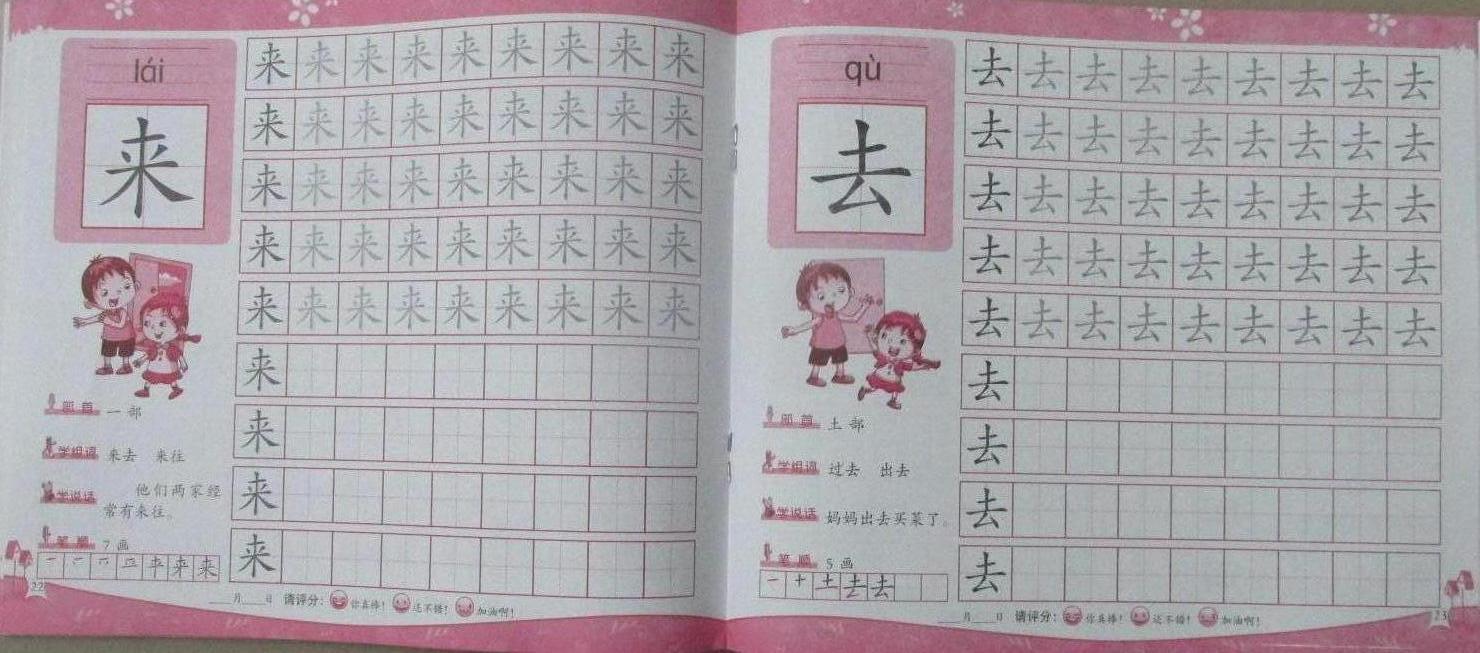 lái
来
来 来 来 来 来 来 来 来 来
来 来 来 来 来 来 来 来 来
来 来 来 来 来 来 来 来 来
来 来 来 来 来 来 来 来 来
来 来 来 来 来 来 来 来 来
来
来
来
来
部首 一部
学组词 来去 来往
学说话 他们两家经
常有来往。
笔顺 7画
来
22
月 日 请评分: 你真棒! 还不错! 加油啊!
qù
去
去 去 去 去 去 去 去 去 去
去 去 去 去 去 去 去 去 去
去 去 去 去 去 去 去 去 去
去 去 去 去 去 去 去 去 去
去 去 去 去 去 去 去 去 去
去
去
去
去
部首 土部
学组词 过去 出去
学说话 妈妈出去买菜了。
笔顺 5画
一 十 土 去 去
月 日 请评分: 你真棒! 还不错! 加油啊!
23